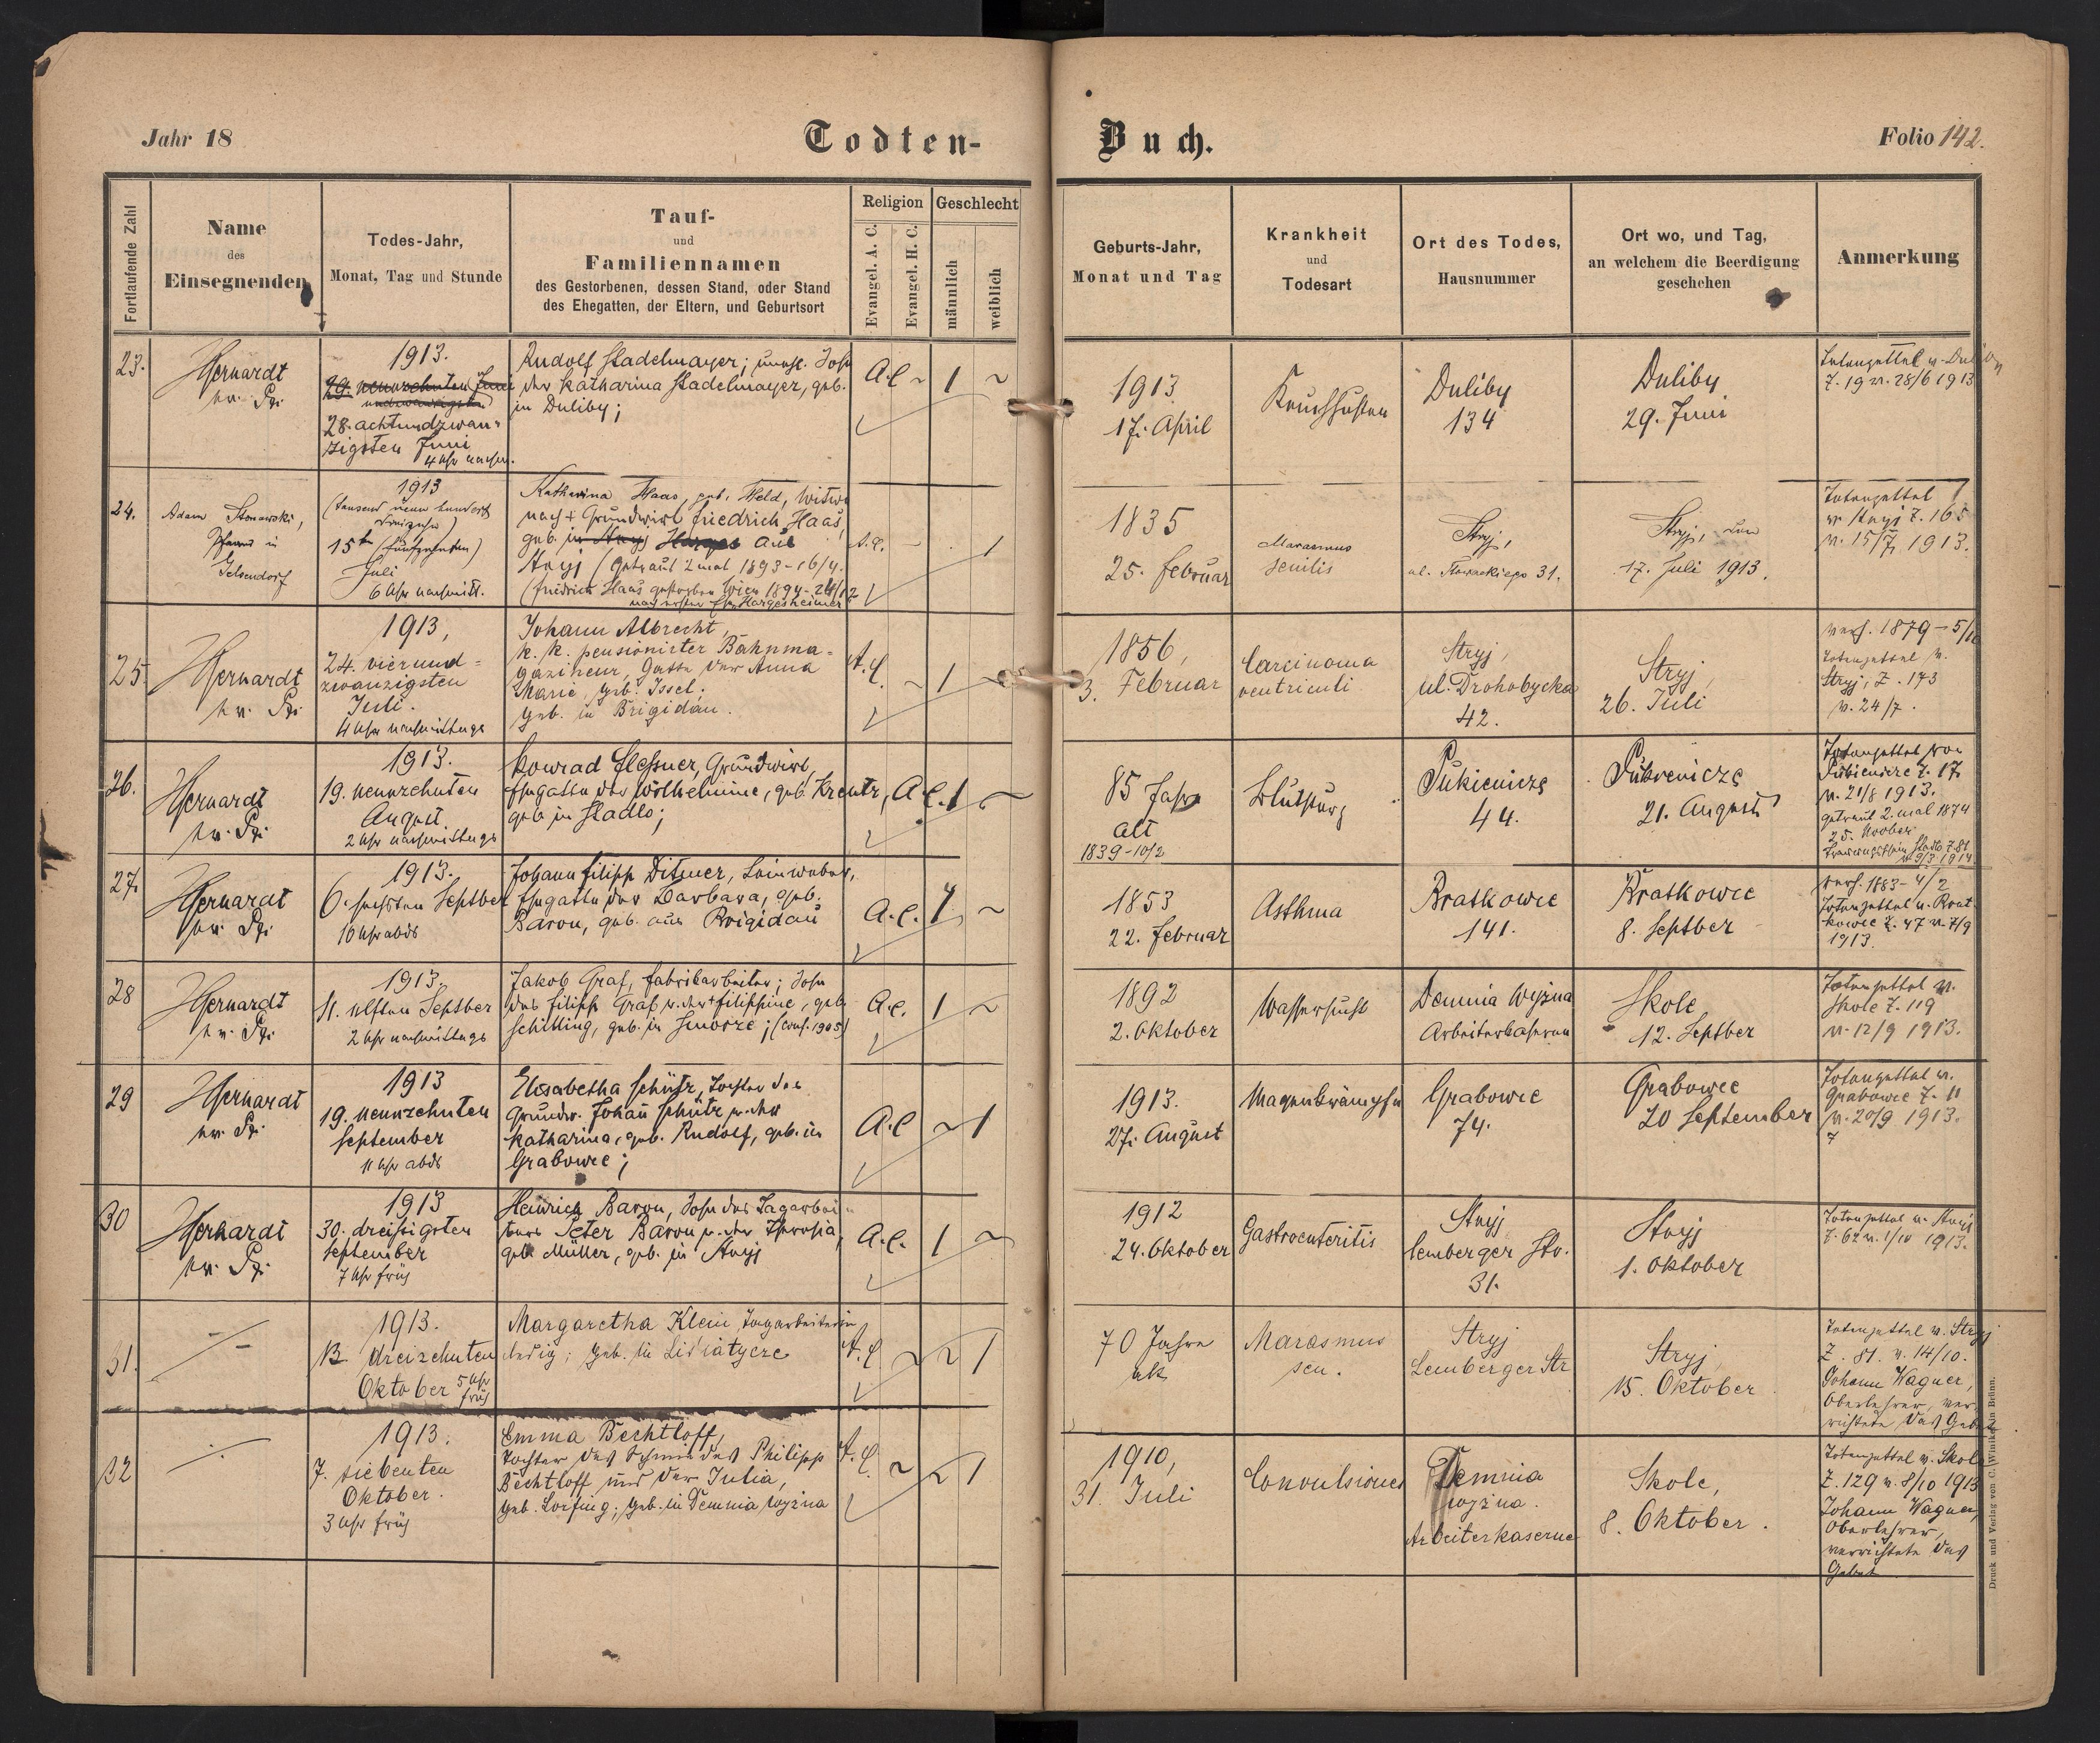 Jahr 18
Todten-
Buch.
Folio 142.
Fortlaufende Zahl
Name
des
Einsegnenden
Todes-Jahr,
Monat, Tag und Stunde
Tauf-
und
Familiennamen
des Gestorbenen, dessen Stand, oder Stand
des Ehegatten, der Eltern, und Geburtsort
Religion
Evangel. A. C.
Evangel. H. C.
Geschlecht
männlich
weiblich
Geburts-Jahr,
Monat und Tag
Krankheit
und
Todesart
Ort des Todes,
Hausnummer
Ort wo, und Tag,
an welchem die Beerdigung
geschehen
Anmerkung
23.
1913.
29. neunzehnten Juni
28. achtundzwan-
zigsten Juni
4 Uhr nachm.
Rudolf Stadelmayer; unehl. Sohn
der Katharina Stadelmayer, geb.
in Duliby;
A.C ~ 1 ~
1913
17. April
Keuchhusten
Duliby
134
Duliby
29. Juni
Totenzettel v. Duliby
Z. 19 v. 28/6 1913
24.
Adam Stonawski,
Pfarrer in
Gelsendorf
1913
(tausend neun hundert
dreizehn)
15ten (fünfzehnten)
Juli
6 Uhr nachmitt.
Katharina Haas, geb. Held, Witwe
nach + Grundwirt Friedrich Haas,
geb. in Stryj aus
Stryj (getraut 2 mal 1893-16/4.
(Friedrich Haas gestorben Wien 1894-24/12
Hargesheimer
A.C. - 1
1835
25. Februar
Marasmus
senilis
Stryj,
ul. Słowackiego 31.
Stryj, den
17. Juli 1913.
Totenzettel
v. Stryj Z. 165
v. 15/7 1913.
25.
1913,
24. vierund-
zwanzigsten
Juli.
4 Uhr nachmittags
Johann Albrecht,
k. k. pensionirter Bahnma-
gazineur, Gatte der Anna
Marie, geb. Issel;
geb. in Brigidau.
A.C. ~ 1 ~
1856,
3. Februar
Carcinoma
ventriculi
Stryj,
ul. Drohobycka
42.
Stryj,
26. Juli
1879-5/10
Totenzettel v.
Stryj, Z. 173
v. 24/7.
26.
1913.
19. neunzehnten
August
2 Uhr nachmittags
Konrad Flessner, Grundwirt,
Ehegatte der Wilhelmine, geb. Kreutz,
geb. in Stadlo;
A.C. 1 ~
85 Jahre
alt
1839-10/2
Blutsturz
Pukienicze
44.
Pukienicze
21. August
Totenzettel von
Pukienicze Z. 17
v. 21/8 1913.
getraut 2. mal 1874
25. November
27.
1913.
6. sechsten Septber
10 Uhr abds
Johann Filipp Ditmer, Leinweber,
Ehegatte der Barbara, geb.
Baron, geb. aus Brigidau
A.C. 1 ~
1853
22. Februar
Asthma
Bratkowce
141.
Bratkowce
8. Septber
1883-4/2
Totenzettel v. Brat-
kowce Z. 47 v. 7/9
1913.
28
1913
11. elften Septber
2 Uhr nachmittags
Jakob Graf, Fabrikarbeiter; Sohn
des Filipp Graf u. der + Filippine, geb.
Schilling, geb. in Smorze; (conf. 1905)
A.C. 1 ~
1892
2. Oktober
Wassersucht
Demnia Wyżna
Arbeiterkaserne
Skole
12. Septber
Totenzettel v.
Skole Z. 119
v. 12/9 1913.
29
1913
19. neunzehnten
September
11 Uhr abds
Elisabetha Schütz, Tochter des
Grundw. Johann Schütz u. der
Katharina, geb. Rudolf, geb. in
Grabowce;
A.C ~ 1
1913.
27. August
Magenkrämpfe
Grabowce
74.
Grabowce
20 September
Totenzettel v.
Grabowce Z. 11
v. 20/9 1913.
30
1913
30. dreissigsten
September
7 Uhr früh
Heinrich Baron, Sohn des Tagarbei-
ters Peter Baron u. der Theresia,
geb. Müller, geb. in Stryj
A.C. 1 ~
1912
24. Oktober
Gastroenteritis
Stryj
Lemberger Str.
31.
Stryj
1. Oktober
Totenzettel v. Stryj
Z. 62 v. 1/10 1913.
31.
1913.
13. dreizehnten
Oktober 5 Uhr
früh
Margaretha Klein, Tagarbeiterin,
ledig; geb. in Lisiatycze
A.C. ~ 1
70 Jahre
alt
Marasmus
sen.
Stryj
Lemberger Str
Stryj,
15. Oktober
Totenzettel v. Stryj
Z. 81. v. 14/10.
Johann Wagner,
Oberlehrer, ver-
richtete das Gebet
32
1913.
7. siebenten
Oktober.
3 Uhr früh
Emma Bechtloff,
Tochter des Schmiedes Philipp
Bechtloff und der Julia,
geb. in Demnia wyżna
A.C. ~ 1
1910,
31. Juli
Convulsiones
Demnia
wyżna.
Arbeiterkaserne
Skole,
8. Oktober.
Totenzettel v. Skole
Z. 129 v. 8/10 1913
Johann Wagner,
Oberlehrer,
verrichtete das
Gebet
Druck und Verlag von C. Winiker in Brünn.